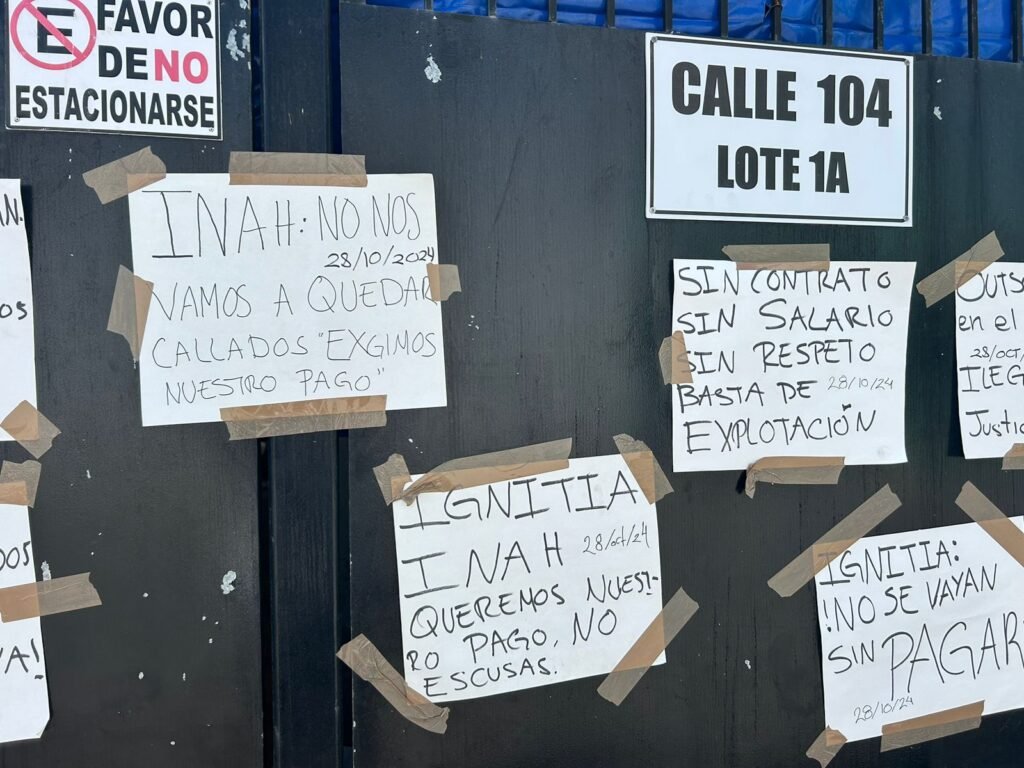 E
FAVOR
DE NO
ESTACIONARSE
CALLE 104
LOTE 1A
INAH: NO NOS
28/10/2024
VAMOS A QUEDAR
CALLADOS "EXGIMOS
NUESTRO PAGO"
SIN CONTRATO
SIN SALARIO
SIN RESPETO
BASTA DE 28/10/24
EXPLOTACIÓN
en el
ILEG
Justic
IGNITIA
INAH 28/oct/24
QUEREMOS NUEST-
RO PAGO, NO
ESCUSAS.
IGNITIA:
!NO SE VAYAN
SIN PAGAR
28/10/24